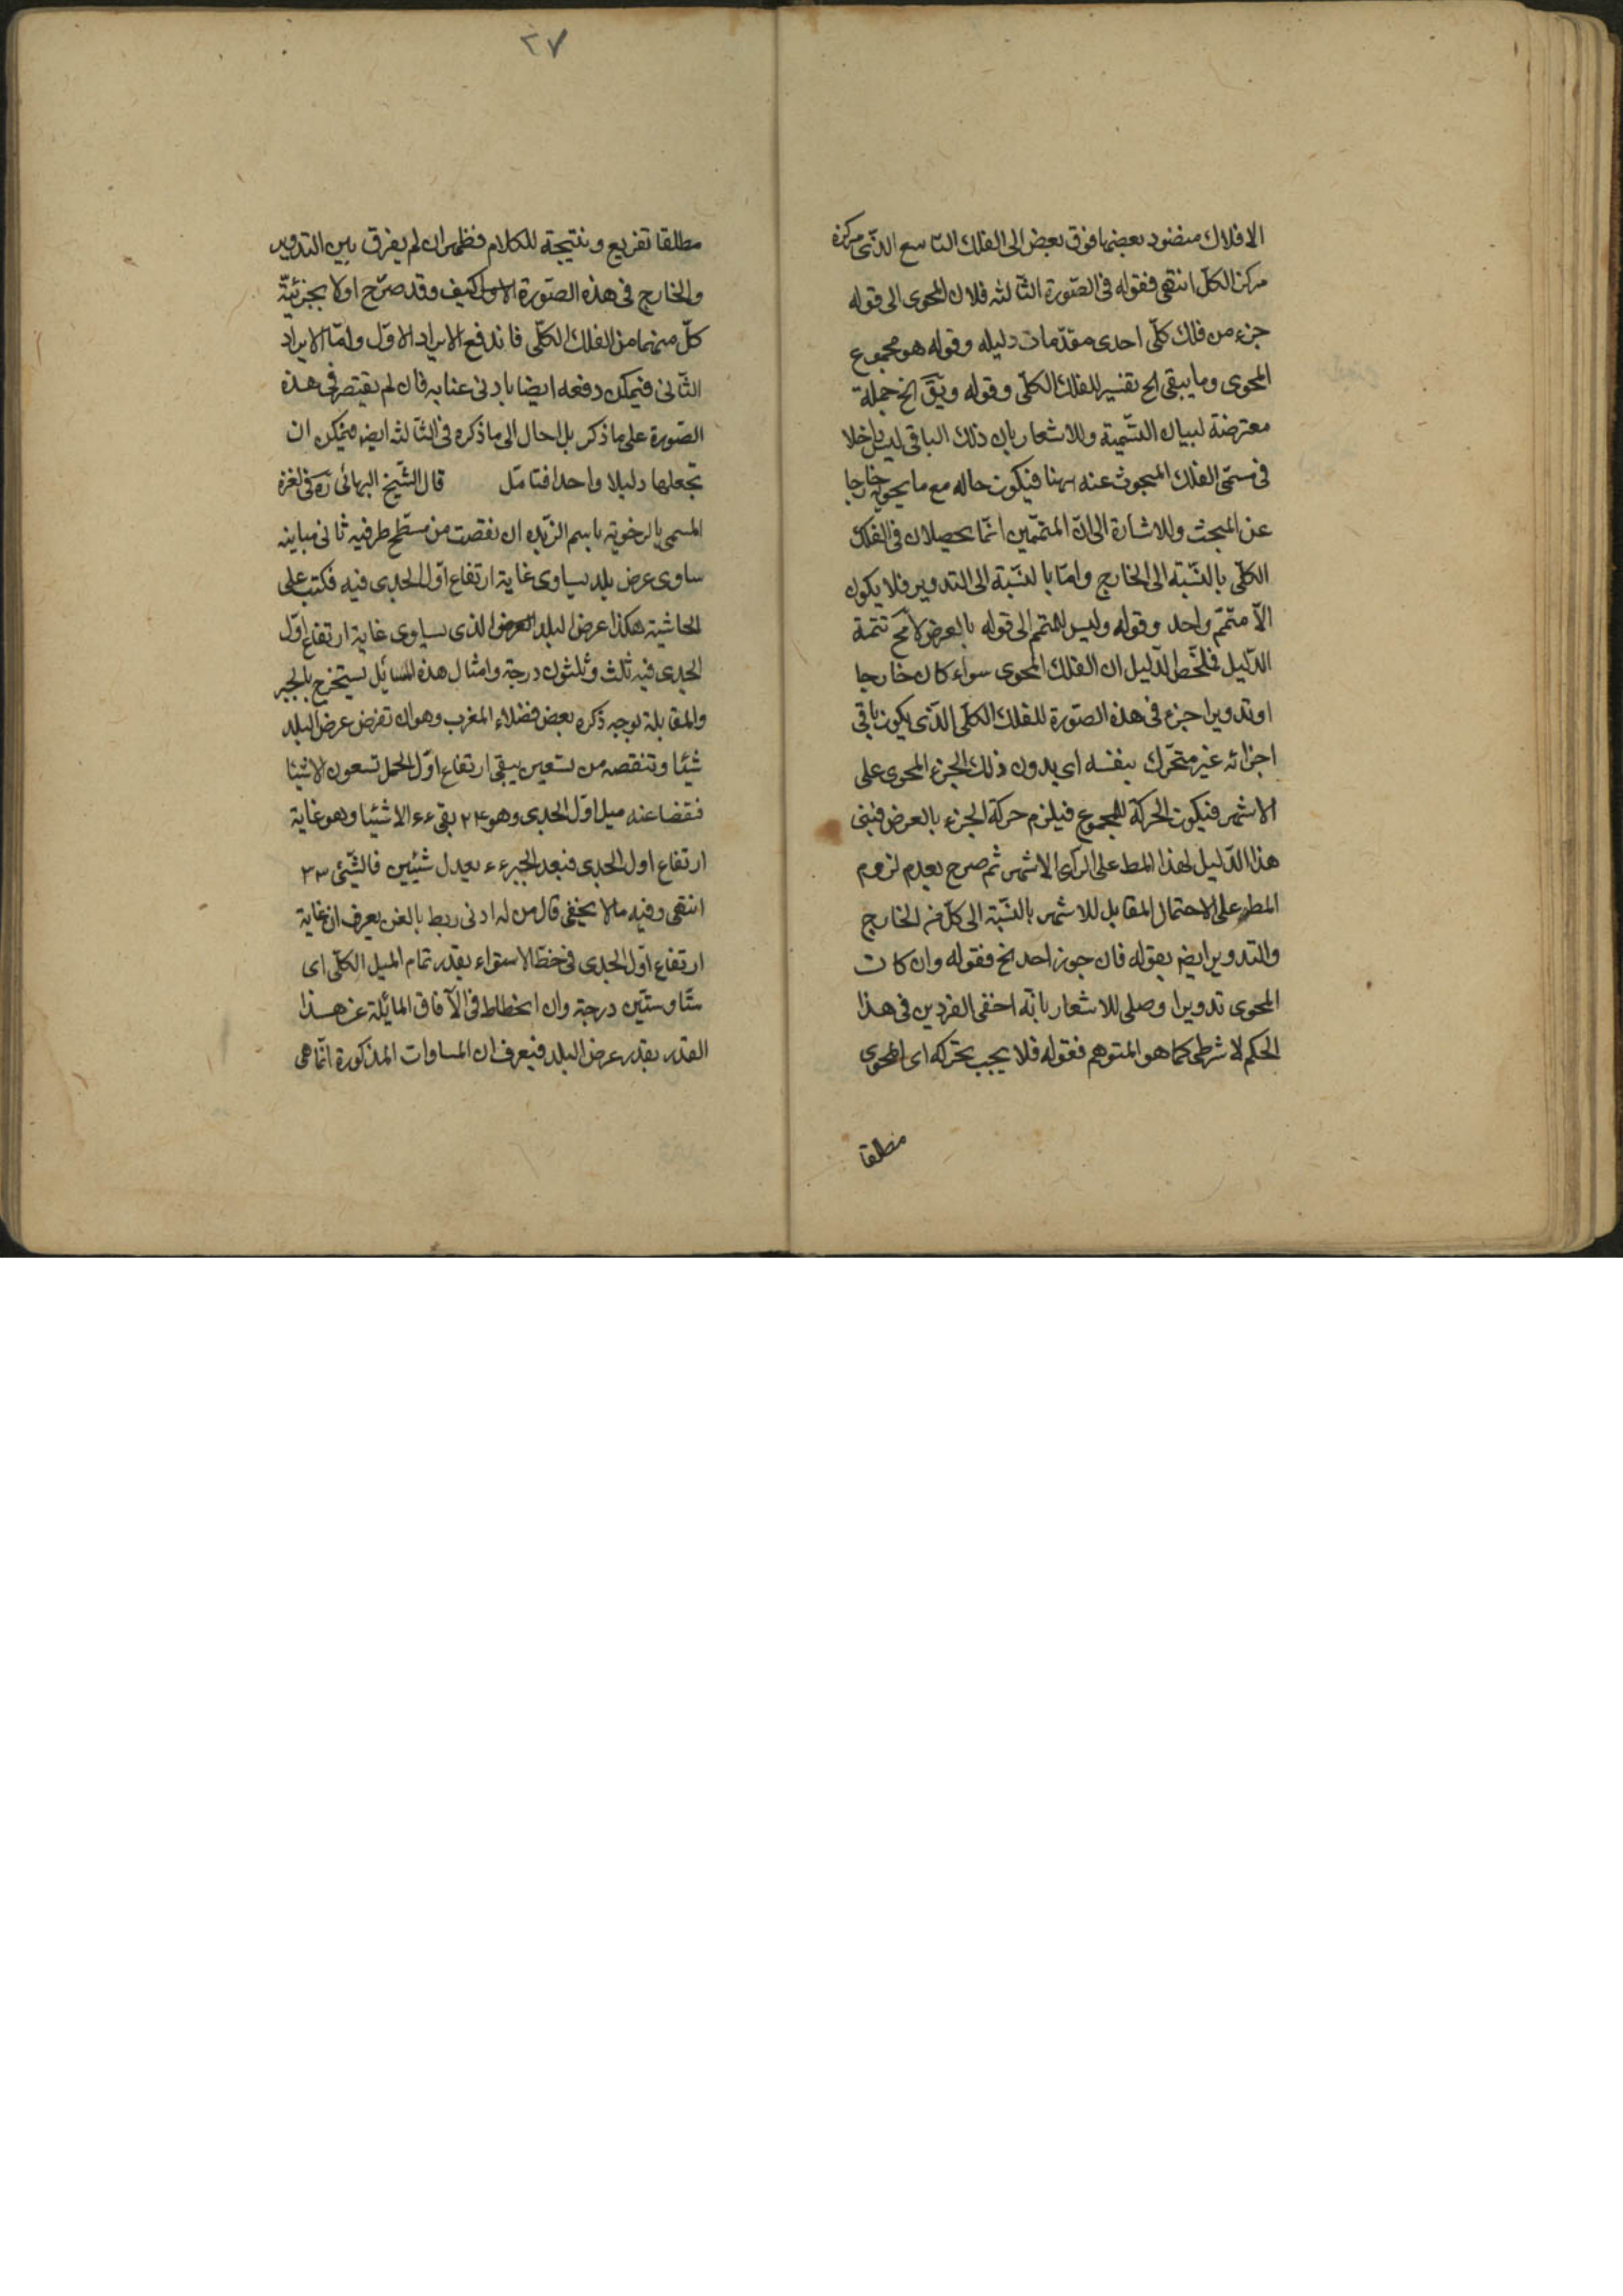 الافلاك منضود بعضها فوق بعض الى الفلك التاسع الذى مركزه
مركز الكل انتهى فقوله فى الصورة الثالثه فلان المحوى الى قوله
جزء من فلك كلى احدى مقدمات دليله وقوله هو مجموع
المحوى وما يبقى الخ تفسير للفلك الكلى وقوله ويق الخ جملة
معترضة لبيان التسمية وللاشعار بان ذلك الباقى ليس داخلا
فى مسمى الفلك المبحوث عنه ههنا فيكون حاله مع ما يحويه خارجا
عن المبحث وللاشارة الى ان المتممين انما يحصلان فى الفلك
الكلى بالنسبة الى الخارج واما بالنسبة الى التدوير فلا يكون
الا متمم واحد وقوله وليس المتمم الى قوله بالعرض لامح تتمة
الدليل فلخص الدليل ان الفلك المحوى سواء كان خارجا
او تدويرا جزء فى هذه الصورة للفلك الكلى الذى يكون باقى
اجزائه غير متحرك بنفسه اى بدون ذلك الجزء المحوى على
الاشهر فيكون الحركة للمجموع فيلزم حركة الجزء بالعرض فبنى
هذا الدليل لهذا المط على الراى الاشهر ثم صرح بعدم لزوم
المط على الاحتمال المقابل للاشهر بالنسبة الى كل من الخارج
والتدوير ايضا بقوله فان جوز احد الخ فقوله وان كان
المحوى تدويرا وصلى للاشعار بانه اخفى الفردين فى هذا
الحكم لا شرطى كما هو المتوهم فقوله فلا يجب تحركه اى المحوى
مطلقا
٢٧
مطلقا تفريع ونتيجة للكلام فظهر ان لم يفرق بين التدوير
والخارج فى هذه الصورة كيف وقد صرح اولا بجزئية
كل منهما من الفلك الكلى فاندفع الايراد الاول واما الايراد
الثانى فيمكن دفعه ايضا بادنى عنايه فان لم يقتصر فى هذه
الصورة على ما ذكر بل احال الى ما ذكره فى الثالثه ايضا فيمكن ان
تجعلها دليلا واحدا فتامل قال الشيخ البهائى ره فى لغزه
المسمى باسم الزبده ان نقصت من مسطح طرفيه ثانى مباينه
ساوى عرض بلد يساوى غاية ارتفاع اول الجدى فيه فكتب على
الحاشية هكذا عرض البلد الذى يساوى غاية ارتفاع اول
الجدى فيه ثلث وثلثون درجة وامثال هذه المسائل يستخرج بالجبر
والمقابلة بوجه ذكره بعض فضلاء المغرب وهو ان تفرض عرض البلد
شيئا وتنقصه من تسعين يبقى ارتفاع اول الحمل تسعون الا شيئا
فنقصنا عنه ميل اول الجدى وهو ٢٤ بقى ٦٦ الا شيئا وهو غاية
ارتفاع اول الجدى فبعد الجبر ٦٦ يعدل شيئين فالشيئ ٣٣
انتهى وفيه ما لا يخفى قال من له ادنى ربط بالفن يعرف ان غاية
ارتفاع اول الجدى فى خط الاستواء بقدر تمام الميل الكلى اى
ستا وستين درجة وان انحطاط فى الآفاق المائلة عن هذا
القدر بقدر عرض البلد فيعرف ان المساوات المذكورة انما هى